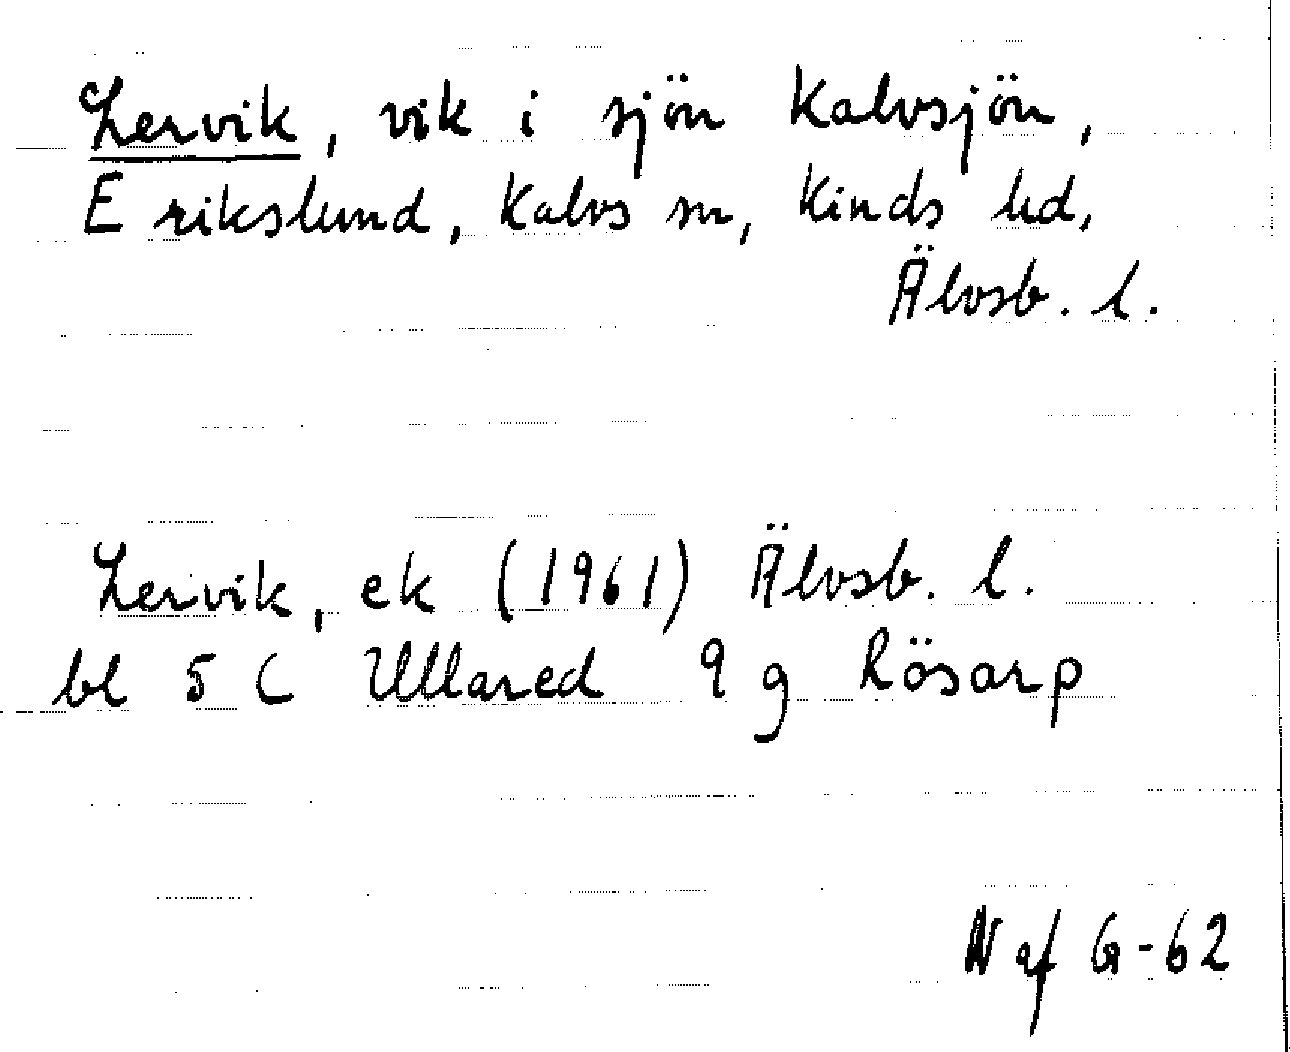 Lervik, vik i sjön Kalvsjön,
E rikslund, Kalvs sn, Kinds hd,
Älvsb. l.
Lervik, ek (1961) Älvsb. l.
bl 5 C Ullared 9 g Rösarp
N af G-62